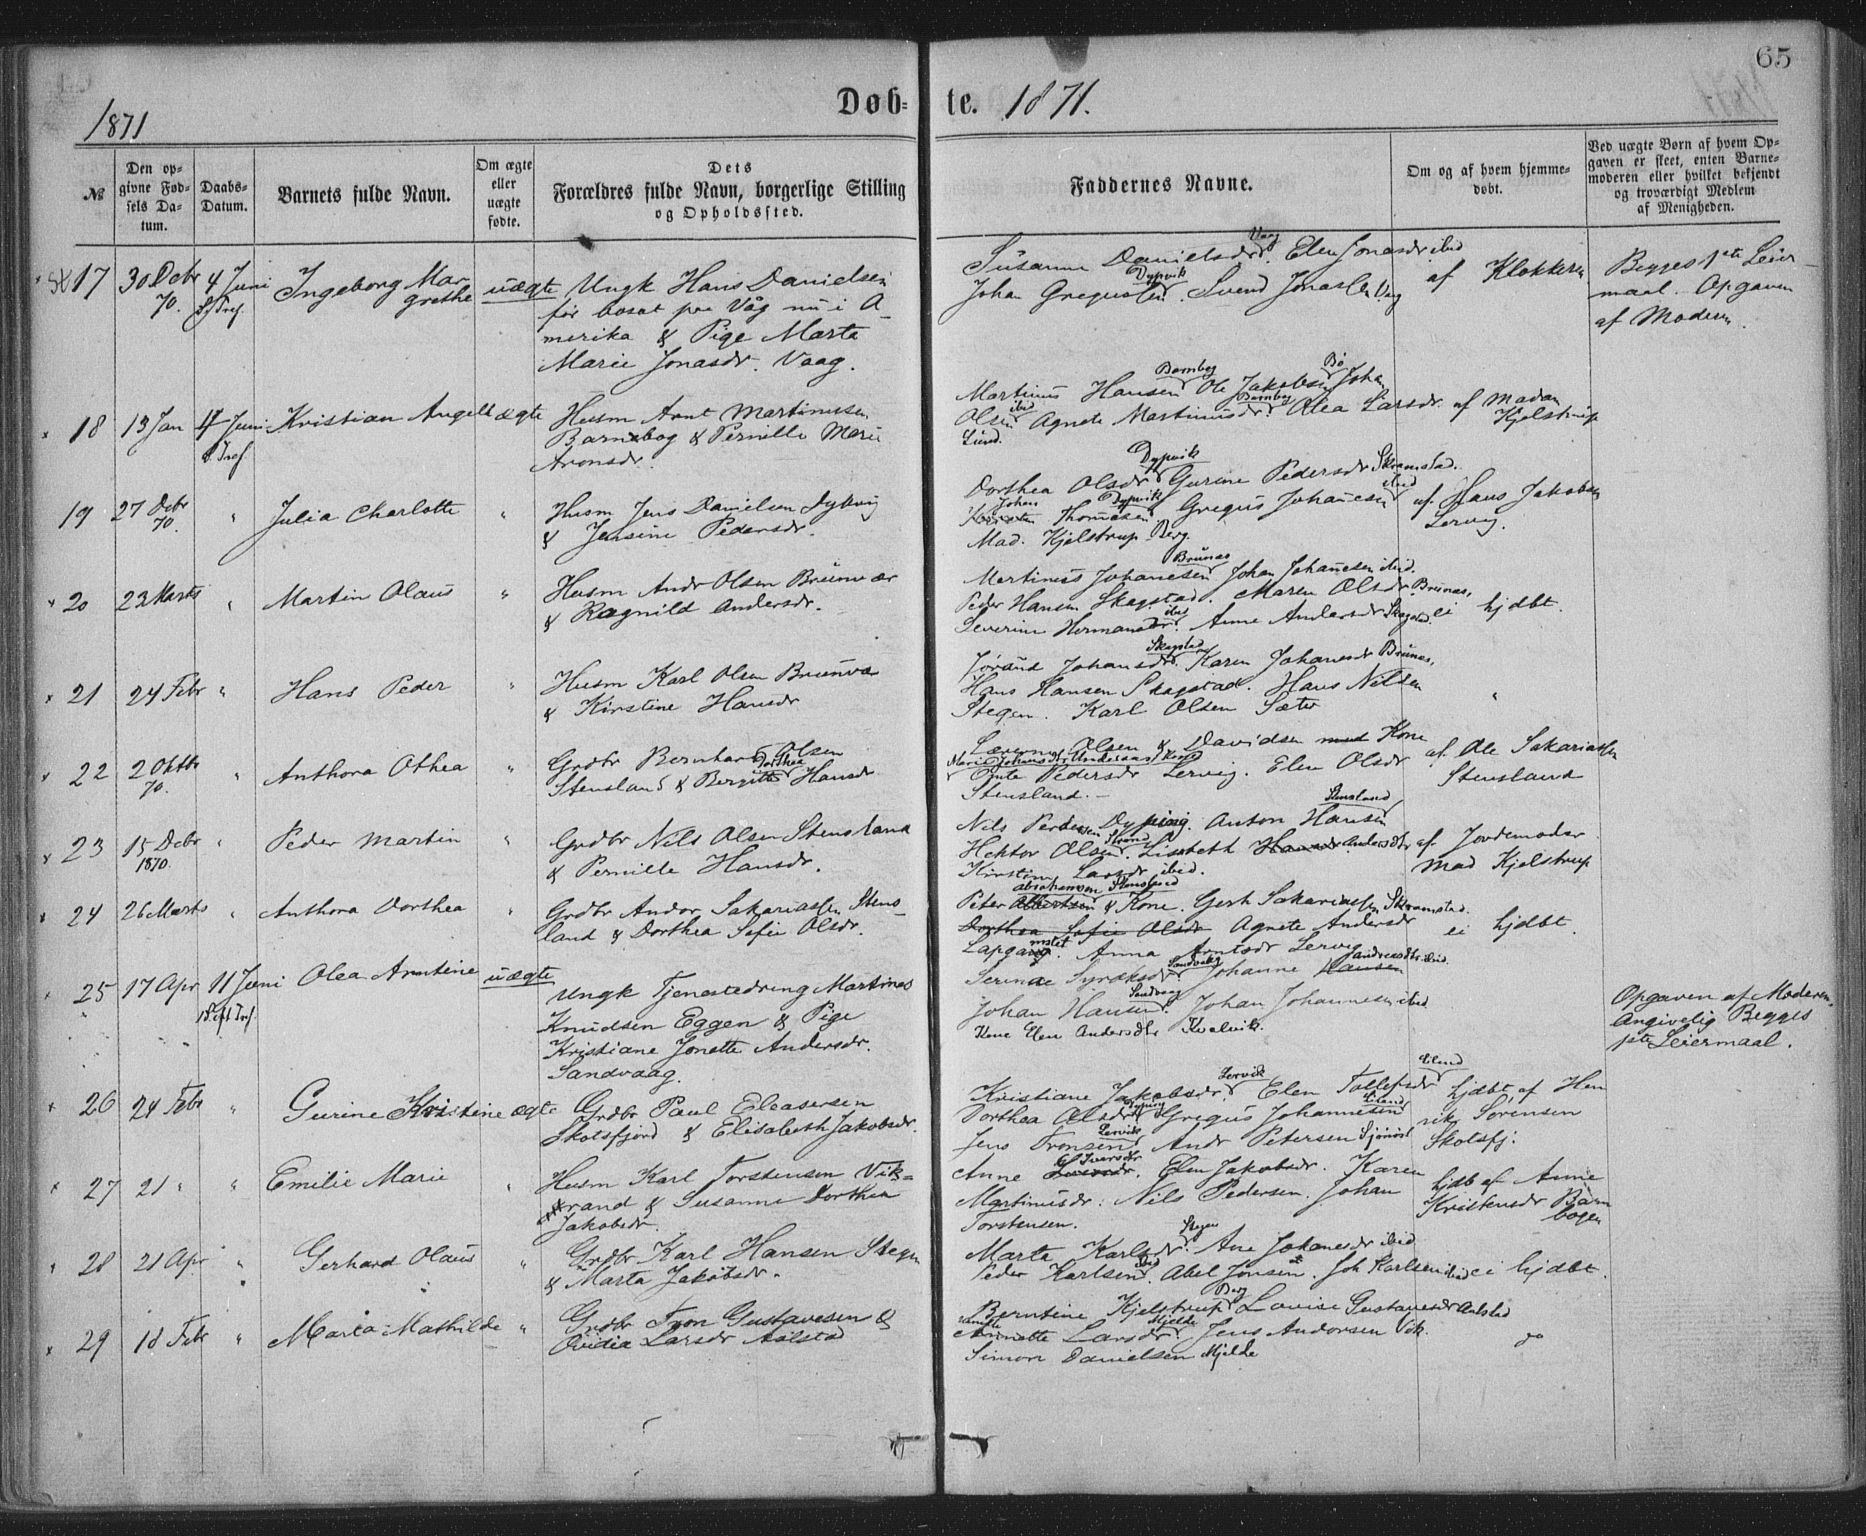 65
Døb= te. 1871.
1871
№
Den op-
givne Fød-
sels Da-
tum.
Daabs-
Datum.
Barnets fulde Navn.
Om ægte
eller
uægte
fødte.
Dets
Forældres fulde Navn, borgerlige Stilling
og Opholdssted.
Faddernes Navne.
Om og af hvem hjemme-
døbt.
Ved uægte Børn af hvem Op-
gaven er skeet, enten Barne-
moderen eller hvilket bekjendt
og troværdigt Medlem
af Menigheden.
17 30 Debr 70. 4 Juni Ingeborg Mar-
grethe uægte
Ungk Hans Danielsen
før bosat paa Våg nu i A-
merika & Pige Marta
Marie Jonasdr. Vaag.
Susanne Danielsdr Vaag. Elen Jonasdr ibid
Johan Gregusen Dypvik. Svend Jonassen Vaag
af Klokkeren
Begges 1ste Leier
maal. Opgaven
af Moderen.
18 13 Jan 4 Juni Kristian Angell ægte
Husm Arnt Martinussen
Barnebog & Pernille Marie
Aronsdr.
Martinus Hansen Barnbog Ole Jakobsen Bø Johan
Olsen ibid Agnete Martinusdr Barnbog. Olea Larsdr
Lund.
af Madam
Kjelstrup
19 27 Debr 70. " Julia Charlotte "
Husm Jens Danielsen Dypvig
& Jensine Pedersdr.
Dorthea Olsdr Dypvik Gurine Pedersdr Skramstad.
Johan Thomesen Dypvik Gregus Johannesen ibid
Mad. Kjelstrup Berg.
af Hans Jakobsen
Lervig.
20 23 Marts " Martin Olaus "
Husm Andr Olsen Brunvær
& Ragnild Andersdr.
Martinus Johanesen Brunæs Johan Johanesen ibid.
Peder Hansen Skagstad. Maren Olsdr Brunæs,
Severine Hermansdr ibid. Anne Andersdr Skagstad.
ei hjdbt.
21 24 Febr " Hans Peder "
Husm Karl Olsen Brunvær
& Kirstine Hansdr
Jørand Johansdr Skagstad. Karen Johanesdr Brunæs,
Hans Hansen Skagstad. Hans Nilsen
Stegen. Karl Olsen Sæter
"
22 2 Oktbr 70. " Anthora Othea "
Grdbr Bernhard Olsen
Stensland & Bergitte Dorthea Hansdr
Olsen & Davidsen med Kone
Pedersdr Lervig. Elen Olsdr
Stensland.
af Ole Sakariassen
Stensland
23 15 Debr 1870. " Peder Martin "
Grdbr Nils Olsen Stensland
& Pernille Hansdr.
Nils Pedersen Dyping. Anton Hansen Stensland
Hektor Olsen Strand. Lisbeth Hansdr Andersdtr
Kirstine Larsdr ibid.
af Jordemoder
Mad Kjelstrup
24 26 Marts " Anthora Dorthea "
Grdbr Andor Sakariassen Stens-
land & Dorthea Sofie Olsdr.
Peter Albertsen Abrahamsen Stensland & Kone. Gert Sakariassen Skramstad.
Dorthea Sofie Olsdr Agnete Andersdr
Anna Arntsdr Lervig
ei hjdbt.
25 17 Apr 11 Juni Olea Arntine uægte
Ungk Tjenestedreng Martinus
Knudsen Eggen & Pige
Kristiane Jonette Andersdr.
Sandvaag.
Serinae Syraksdr Sandvaag Johanne Hansen Andreasdtr ibid.
Johan Hansen Sandvaag. Johan Johannesen ibid
Kone Elen Andersdtr Kvelvik.
Opgaven af Moderen.
Angivelig Begges
1ste Leiermaal.
26 24 Febr " Gurine Kristine ægte
Grdbr Paul Eleasersen
Skotsfjord & Elisabeth Jakobsdr.
Kristiane Jakobsdr Lervik. Elen Tollefsdr Eiland
Dorthea Olsdr Dyping Gregus Johannesen Eiland
Jens Tronsen Lervik Andr Petersen
hjdbt af Hen
rik Sørensen
Skotsfj.
27 21 " " Emilie Marie "
Husm Karl Torstensen Vik=
strand & Susanne Dorthea
Jakobsdr.
Anne Iversdtr. Elen Jakobsdr. Karen
Martinusdr. Nils Pedersen. Johan
Torstensen.
hjdb af Anne
Kristensdr Barn
bogen
28 21 Apr " Gerhard Olaus "
Grdbr Karl Hansen Stegen
& Marta Jakobsdr.
Marta Karlsdr Stegen. Ane Johanesdr ibid
Peder Karlsen ibid. Abel Jonsen. Joh Karlsen ibid
ei hjdbt.
29 18 Febr " Maria Mathilde "
Grdbr Tron Gustavesen &
Ovidia Larsdr Aalstad
Berntine Kjelstrup Berg Lovise Gustavesdr Aalstad
Anette Larsdr Mjelde Jens Andorsen Vik.
Simon Danielsen Mjelde